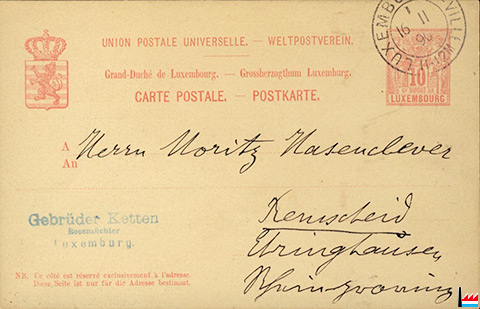 UNION POSTALE UNIVERSELLE. — WELTPOSTVEREIN.
Grand-Duché de Luxembourg. — Grossherzogthum Luxemburg.
CARTE POSTALE. — POSTKARTE.
LUXEMBOURG-VILLE
1
16 11
90
11-12M
10
LUXEMBOURG
A
An
Herrn Moritz Hasenclever
Remscheid
Ehringhausen
Rheinprovinz
Gebrüder Ketten
Rosenzüchter
Luxemburg.
NB. Ce côté est réservé exclusivement à l'adresse.
Diese Seite ist nur für die Adresse bestimmt.